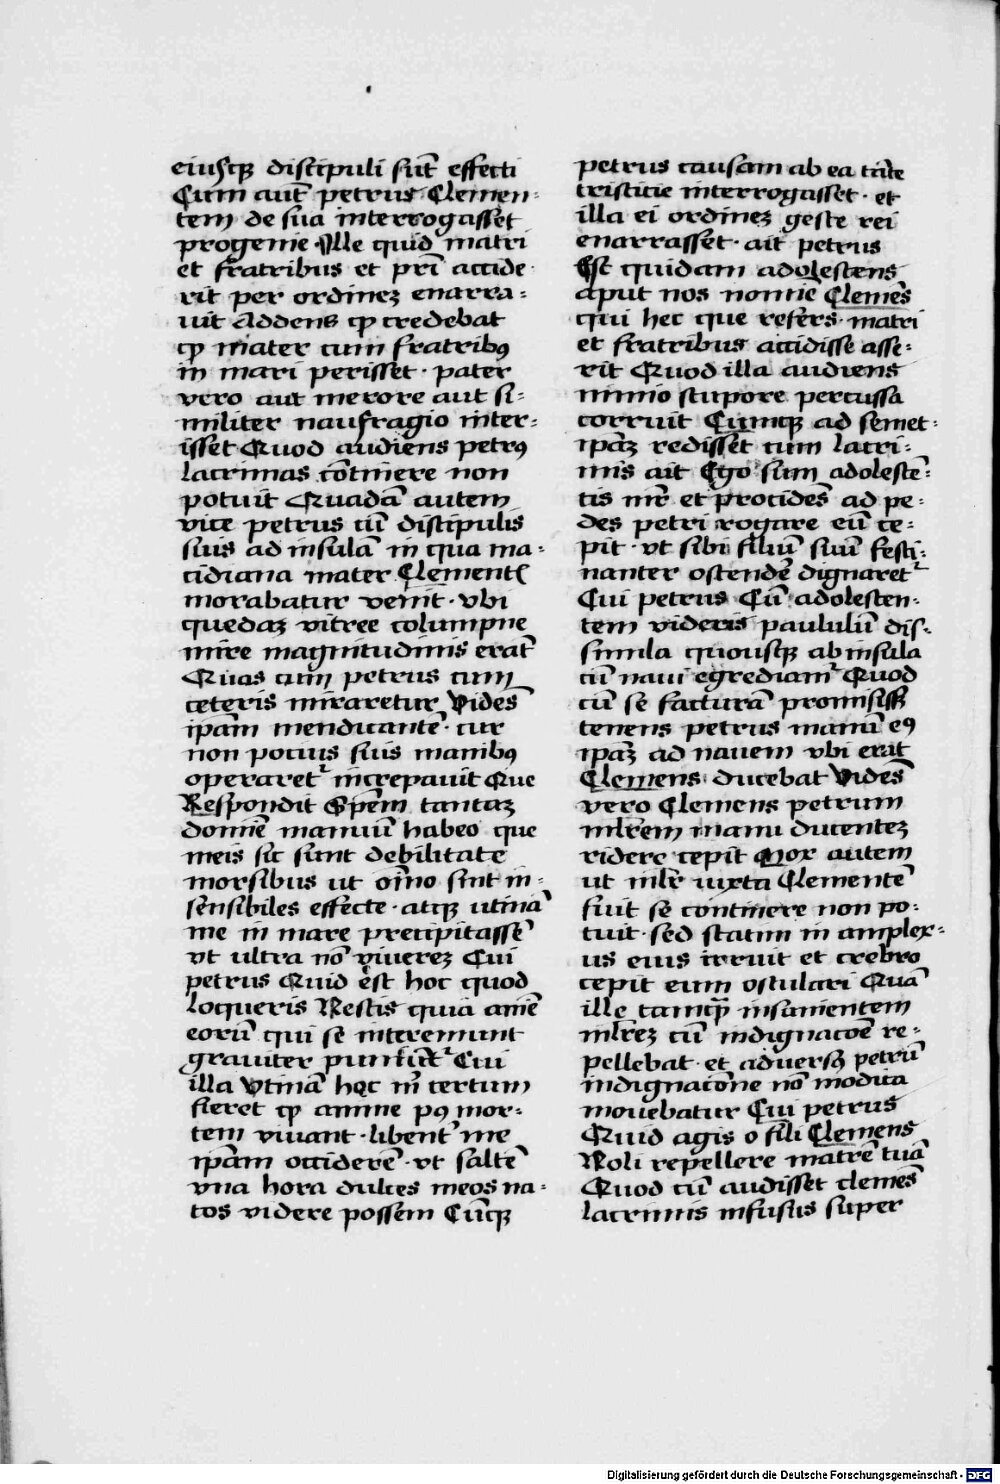 eiusq₃ discipuli sūt effecti
Cum aūt petrus Clemen-
tem de sua interrogasset
progenie Ille quid matri
et fratribus et pr̄i accide-
rit per ordinez enarra-
uit Addens ꝙ credebat
ꝙ mater cum fratribꝯ
in mari perisset · pater
vero aut merore aut si-
militer naufragio inter-
isset Quod audiens petrꝯ
lacrimas cōtinere non
potuit Quadā autem
vice petrus cū discipulis
suis ad insulā in qua ma-
cidiana mater Clementꝭ
morabatur venit · vbi
quedaz vitree columpne
mire magnitudinis erāt
Quas cum petrus cum
ceteris miraretur Vidēs
ip̄am mendicantē · cur
non pocius suis manibꝯ
operaretᷣ increpauit Que
Respondit Sp̄em tantaz
domīe manuū habeo que
meis sic sunt debilitate
morsibus ut oīno sint in-
sensibiles effecte · atq₃ utinā
me in mare precipitassē
vt ultra nō viuerez Cui
petrus Quid est hoc quod
loqueris Nescis quia aīe
eorū qui se interemunt
grauiter puniūtᷣ Cui
illa Vtinā hoc m̄ certum
fieret ꝙ anime pꝯ mor-
tem viuant · libentᷣ me
ip̄am occiderē · vt saltē
vna hora dulces meos na-
tos videre possem Cūq₃
petrus causam ab ea tāte
tristicie interrogasset · et
illa ei ordinez geste rei
enarrasset · ait petrus
Est quidam adolescens
aput nos nomīe Clemēs
qui hec que refers · matri
et fratribus accidisse asse-
rit Quod illa audiens
nimio stupore percussa
corruit Cumq₃ ad semet-
ip̄az redisset cum lacri-
mis ait Ego sum adolescē-
tis mr̄ et procidēs ad pe-
des petri rogare eū ce-
pit · vt sibi filiū suū festi-
nanter ostendē dignaretᷣ
Cui petrus Cū adolescen-
tem videris paululū dis-
simula quousq₃ ab insula
cū naui egrediamᷣ Quod
cū se facturā promisiss₃
tenens petrus manū eꝯ
ip̄az ad nauem vbi erat
Clemens ducebat Vidēs
vero Clemens petrum
ml̄rem manu ducentez
ridere cepit Mox autem
ut ml̄r iuxta Clementē
fuit se continere non po-
tuit · sed statim in amplex-
us eius irruit et crebro
cepit eum osculari Quā
ille tamq̄₃ insanientem
ml̄rez cū indignacōe re-
pellebat · et aduersꝯ petrū
indignacōne nō modica
mouebatur Cui petrus
Quid agis o fili Clemens
Noli repellere matrē tuā
Quod cū audisset clemēs
lacrimis infusus super
Digitalisierung gefördert durch die Deutsche Forschungsgemeinschaft - DFG